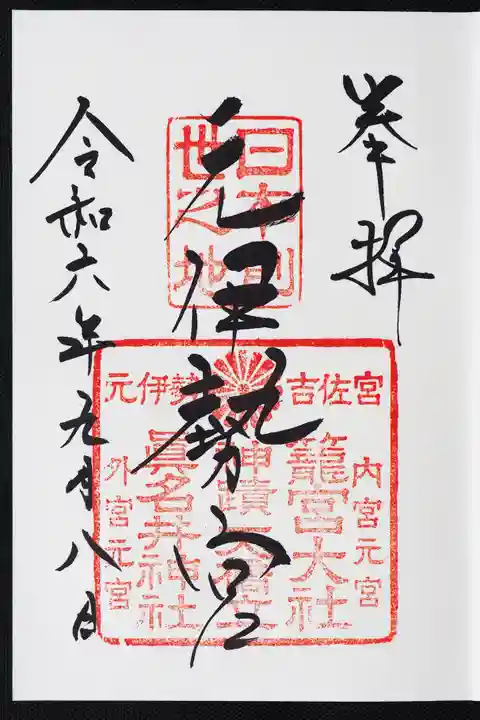 奉拝
日本創
世之地
元伊勢宮
元伊勢 吉佐宮
内宮元宮
籠宮大社
神蹟天橋立
眞名井神社
外宮元宮
令和六年九月八日